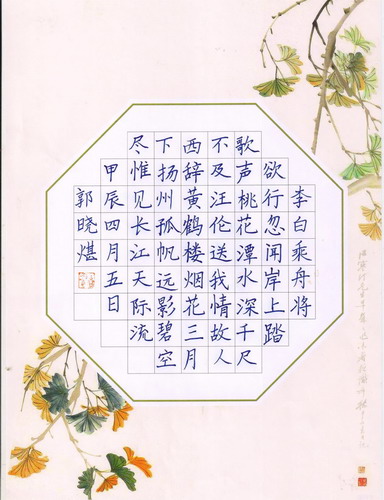 李白乘舟将
欲行忽闻岸上踏
歌声桃花潭水深千尺
不及汪伦送我情故人
西辞黄鹤楼烟花三月
下扬州孤帆远影碧空
尽惟见长江天际流
甲辰四月五日
郭晓煁